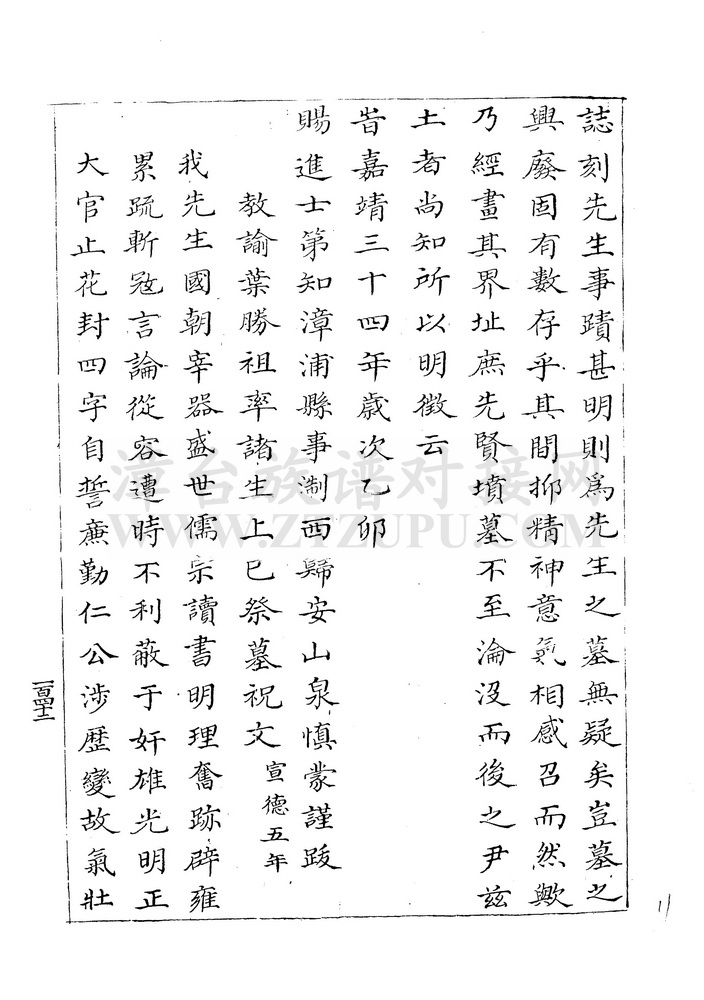 誌刻先生事蹟甚明則為先生之墓無疑矣豈墓之
興廢固有數存乎其間抑精神意氣相感召而然歟
乃經畫其界址庶先賢墳墓不至淪沒而後之尹茲
土者尚知所以明徵云
旹嘉靖三十四年歲次乙卯
賜進士第知漳浦縣事淛西歸安山泉慎蒙謹跋
教諭葉勝祖率諸生上巳祭墓祝文 宣德五年
我先生國朝宰器盛世儒宗讀書明理奮跡辟雍
累䟽斬冦言論從容遭時不利蔽于奸雄光明正
大官止花封四字自誓亷勤仁公涉歷變故氣壯
一百四十二
11
漳台族谱对接网
WWW.ZTZUPU.COM